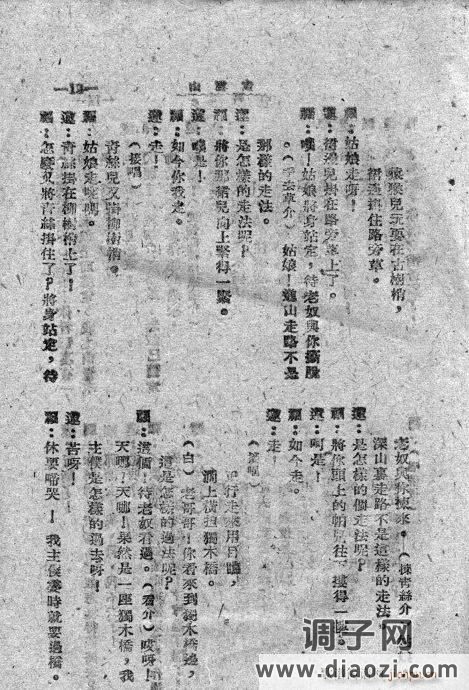 猿猴兒玩耍在古樹梢,
裙邊掛住路旁草。
福:姑娘走呀!
蓮:裙邊兒掛在路旁草上了。
福:噢!姑娘將身站定,待老奴與你摘脫
。(手去草介)姑娘!這山走路不是
那樣的走法。
蓮:是怎樣的走法呢?
福:將你那裙兒向上緊得一緊。
蓮:噢是!
福:如今你我走。
蓮:走!
(接唱)
青絲兒又掛柳樹梢。
福:姑娘走呀
蓮:青絲掛在柳樹梢上了!
福:怎麼又將青絲掛住了?將身站定,待
老奴與你摘來。(揀青絲介)
深山裏走路不是這樣的走法
蓮:是怎樣的個走法呢?
福:將你頭上的帕兒往下摟得一摟。
蓮:呵是!
福:如今走。
蓮:走!
(接唱)
正行走來用目瞧,
澗上橫担獨木橋。
(白)老哥哥!你看來到獨木橋邊,
這是怎樣的過法呢?
福:這個!待老奴看過。(看介)哎呀!
天哪!天哪!果然是一座獨木橋,我
主僕是怎樣的過去呀!
蓮:苦呀!
福:休要啼哭!我主僕霎時就要過橋。
调子网
www.diaozi.com